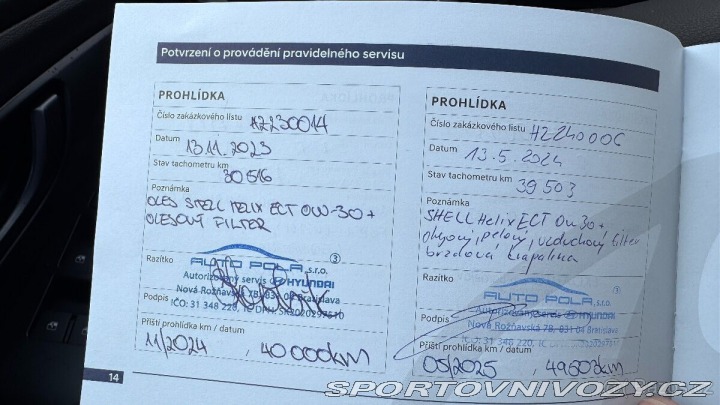 Potvrzení o provádění pravidelného servisu
PROHLÍDKA
Číslo zakázkového listu HZ230014
Datum 13.11.2023
Stav tachometru km 30 516
Poznámka
OLEJ SHELL HELIX ECT 0W-30 +
OLEJOVÝ FILTER
Razítko
AUTO POLA, s.r.o.
Autorizovaný servis HYUNDAI
Nová Rožňavská 7B, 831 04 Bratislava
Podpis IČO: 31 348 220, IČ DPH:
Příští prohlídka km / datum
11/2024, 40 000km
14
PROHLÍDKA
Číslo zakázkového listu HZ24000C
Datum 13.5.2024
Stav tachometru km 39 503
Poznámka
SHELL Helix ECT 0w30+
olejový, pelový, vzduchový filter
brzdová kvapalina
Razítko
AUTO POLA, s.r.o.
Autorizovaný servis HYUNDAI
Podpis Nová Rožňavská 7B, 831 04 Bratislava
31 348 220, IČ DPH:
Příští prohlídka km / datum
05/2025, 49503km
SPORTOVNIVOZY.CZ